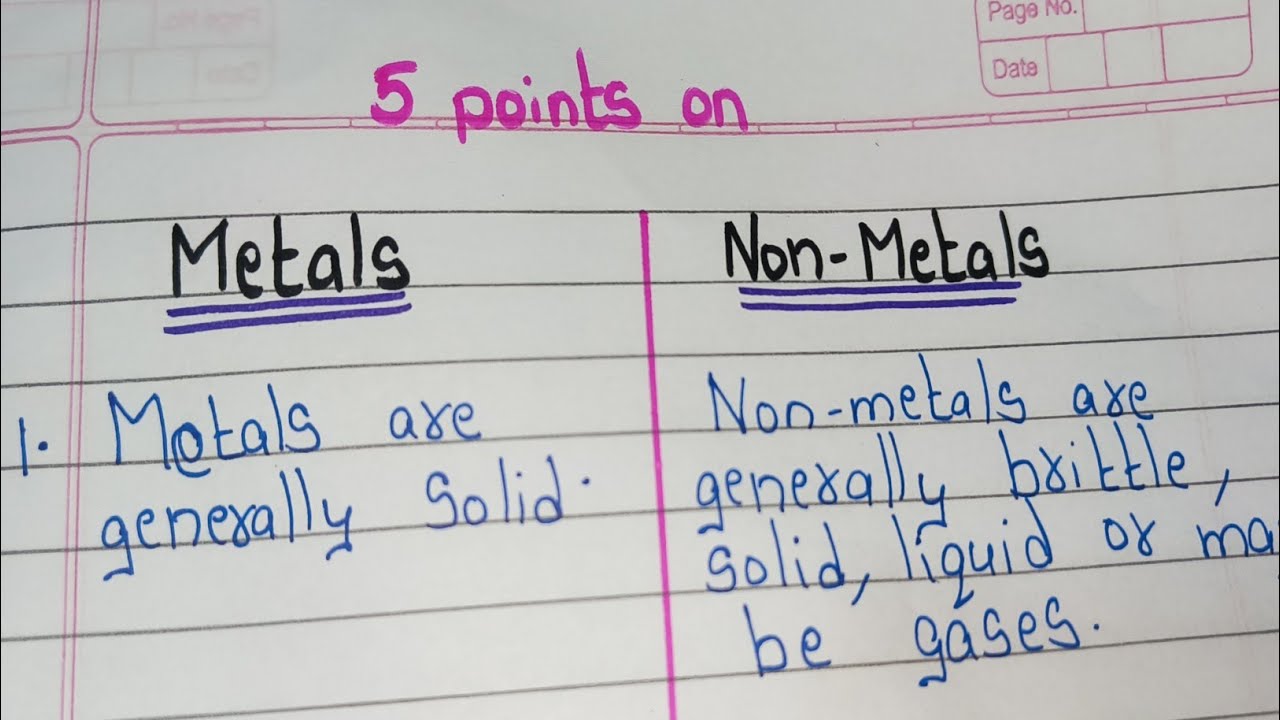 Page No.
Date
5 points on
Metals
Non-Metals
1. Metals are
generally Solid.
Non-metals are
generally brittle,
solid, liquid or ma
be gases.